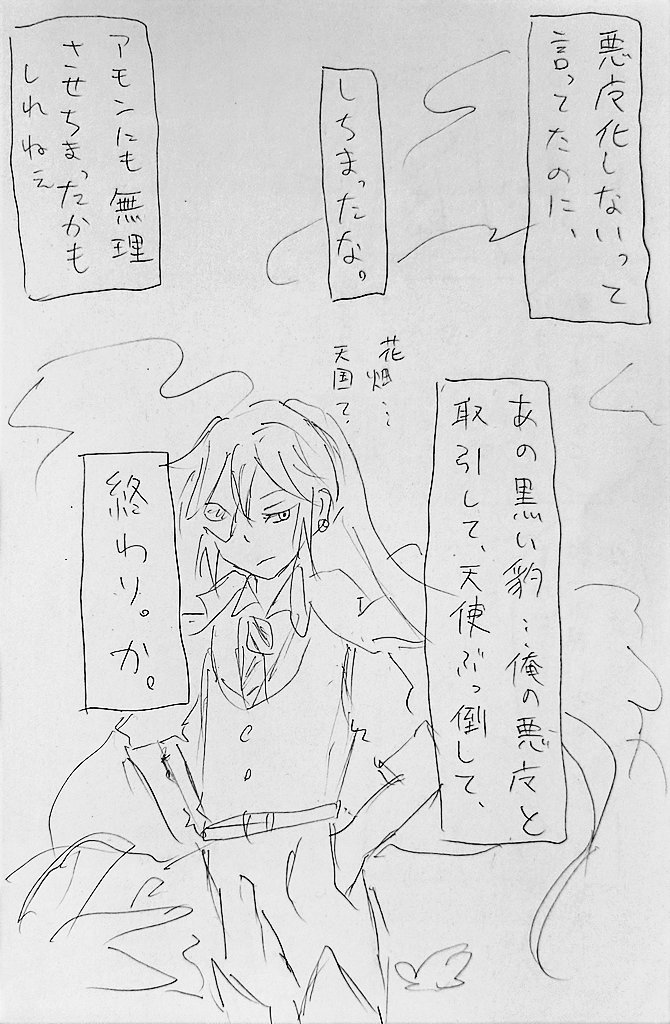 悪皮化しないって
言ってたのに、
しちまったな。
アモンにも無理
させちまったかも
しれねえ
花畑…
天国て、
あの黒い豹…俺の悪皮と
取引して、天使ぶっ倒して、
終わり。か。